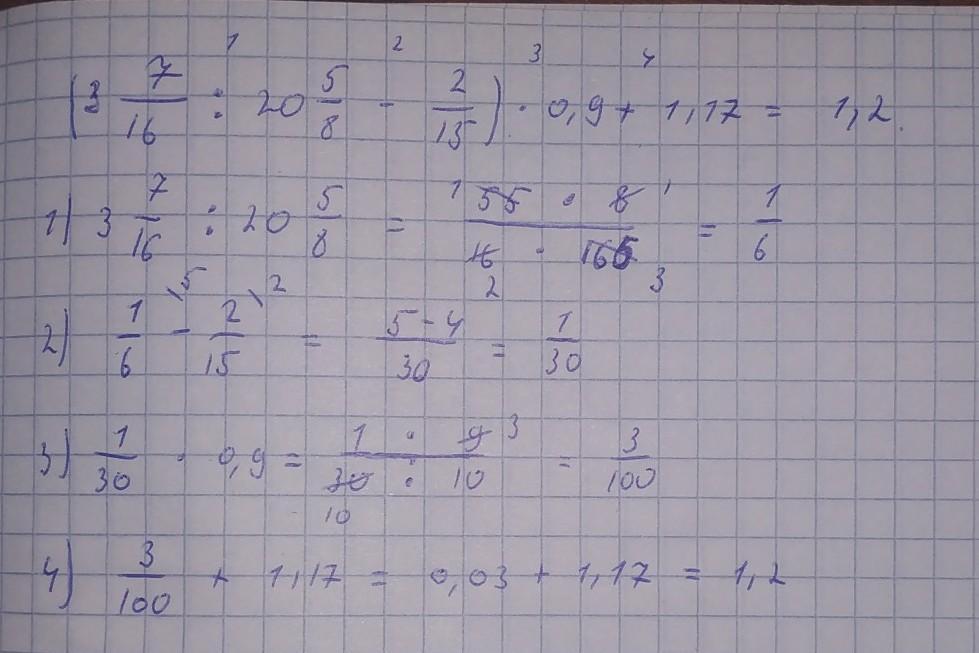 1 2 3 4
(3 7/16 : 20 5/8 - 2/15) · 0,9 + 1,17 = 1,2.
1) 3 7/16 : 20 5/8 = 1 55 · 8 1 / 16 · 165 2 3 = 1/6
2) 1/6 \5 - 2/15 \2 = 5-4/30 = 1/30
3) 1/30 · 0,9 = 1 · 9 3 / 30 · 10 10 = 3/100
4) 3/100 + 1,17 = 0,03 + 1,17 = 1,2